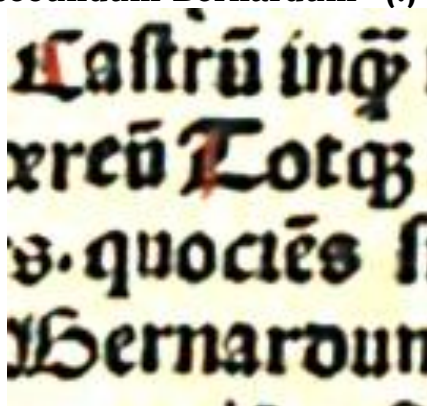 Caſtrū inqͥ
xreñ Totqꝫ
s. quociēs
Bernardun